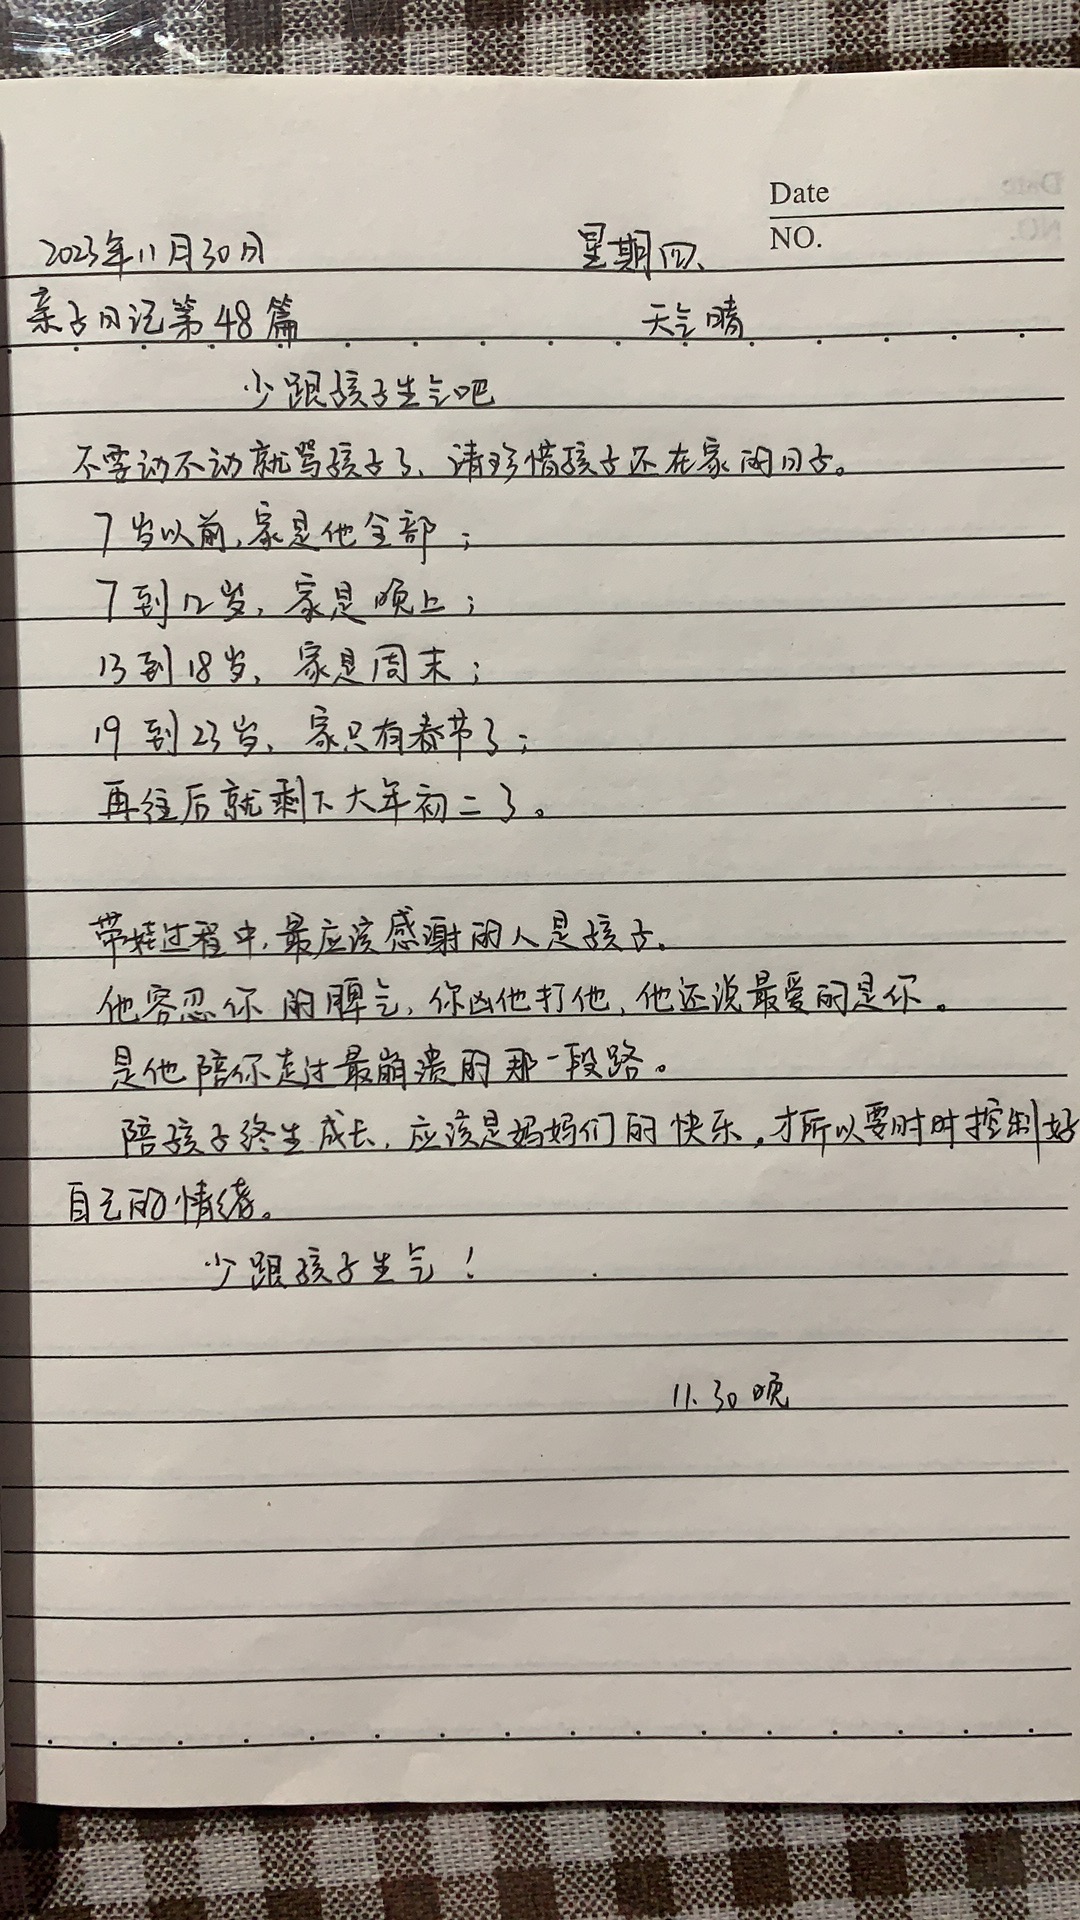 Date
NO.
2023年11月30日 星期四、
亲子日记第48篇 天气晴
少跟孩子生气吧
不要动不动就骂孩子了、请珍惜孩子还在家的日子。
7岁以前,家是他全部;
7到12岁,家是晚上;
13到18岁,家是周末;
19到23岁,家只有春节了;
再往后就剩下大年初二了。
带娃过程中,最应该感谢的人是孩子.
他容忍你的脾气,你凶他打他,他还说最爱的是你。
是他陪你走过最崩溃的那一段路。
陪孩子终生成长,应该是妈妈们的快乐,才所以要时时控制好
自己的情绪。
少跟孩子生气!
11.30晚